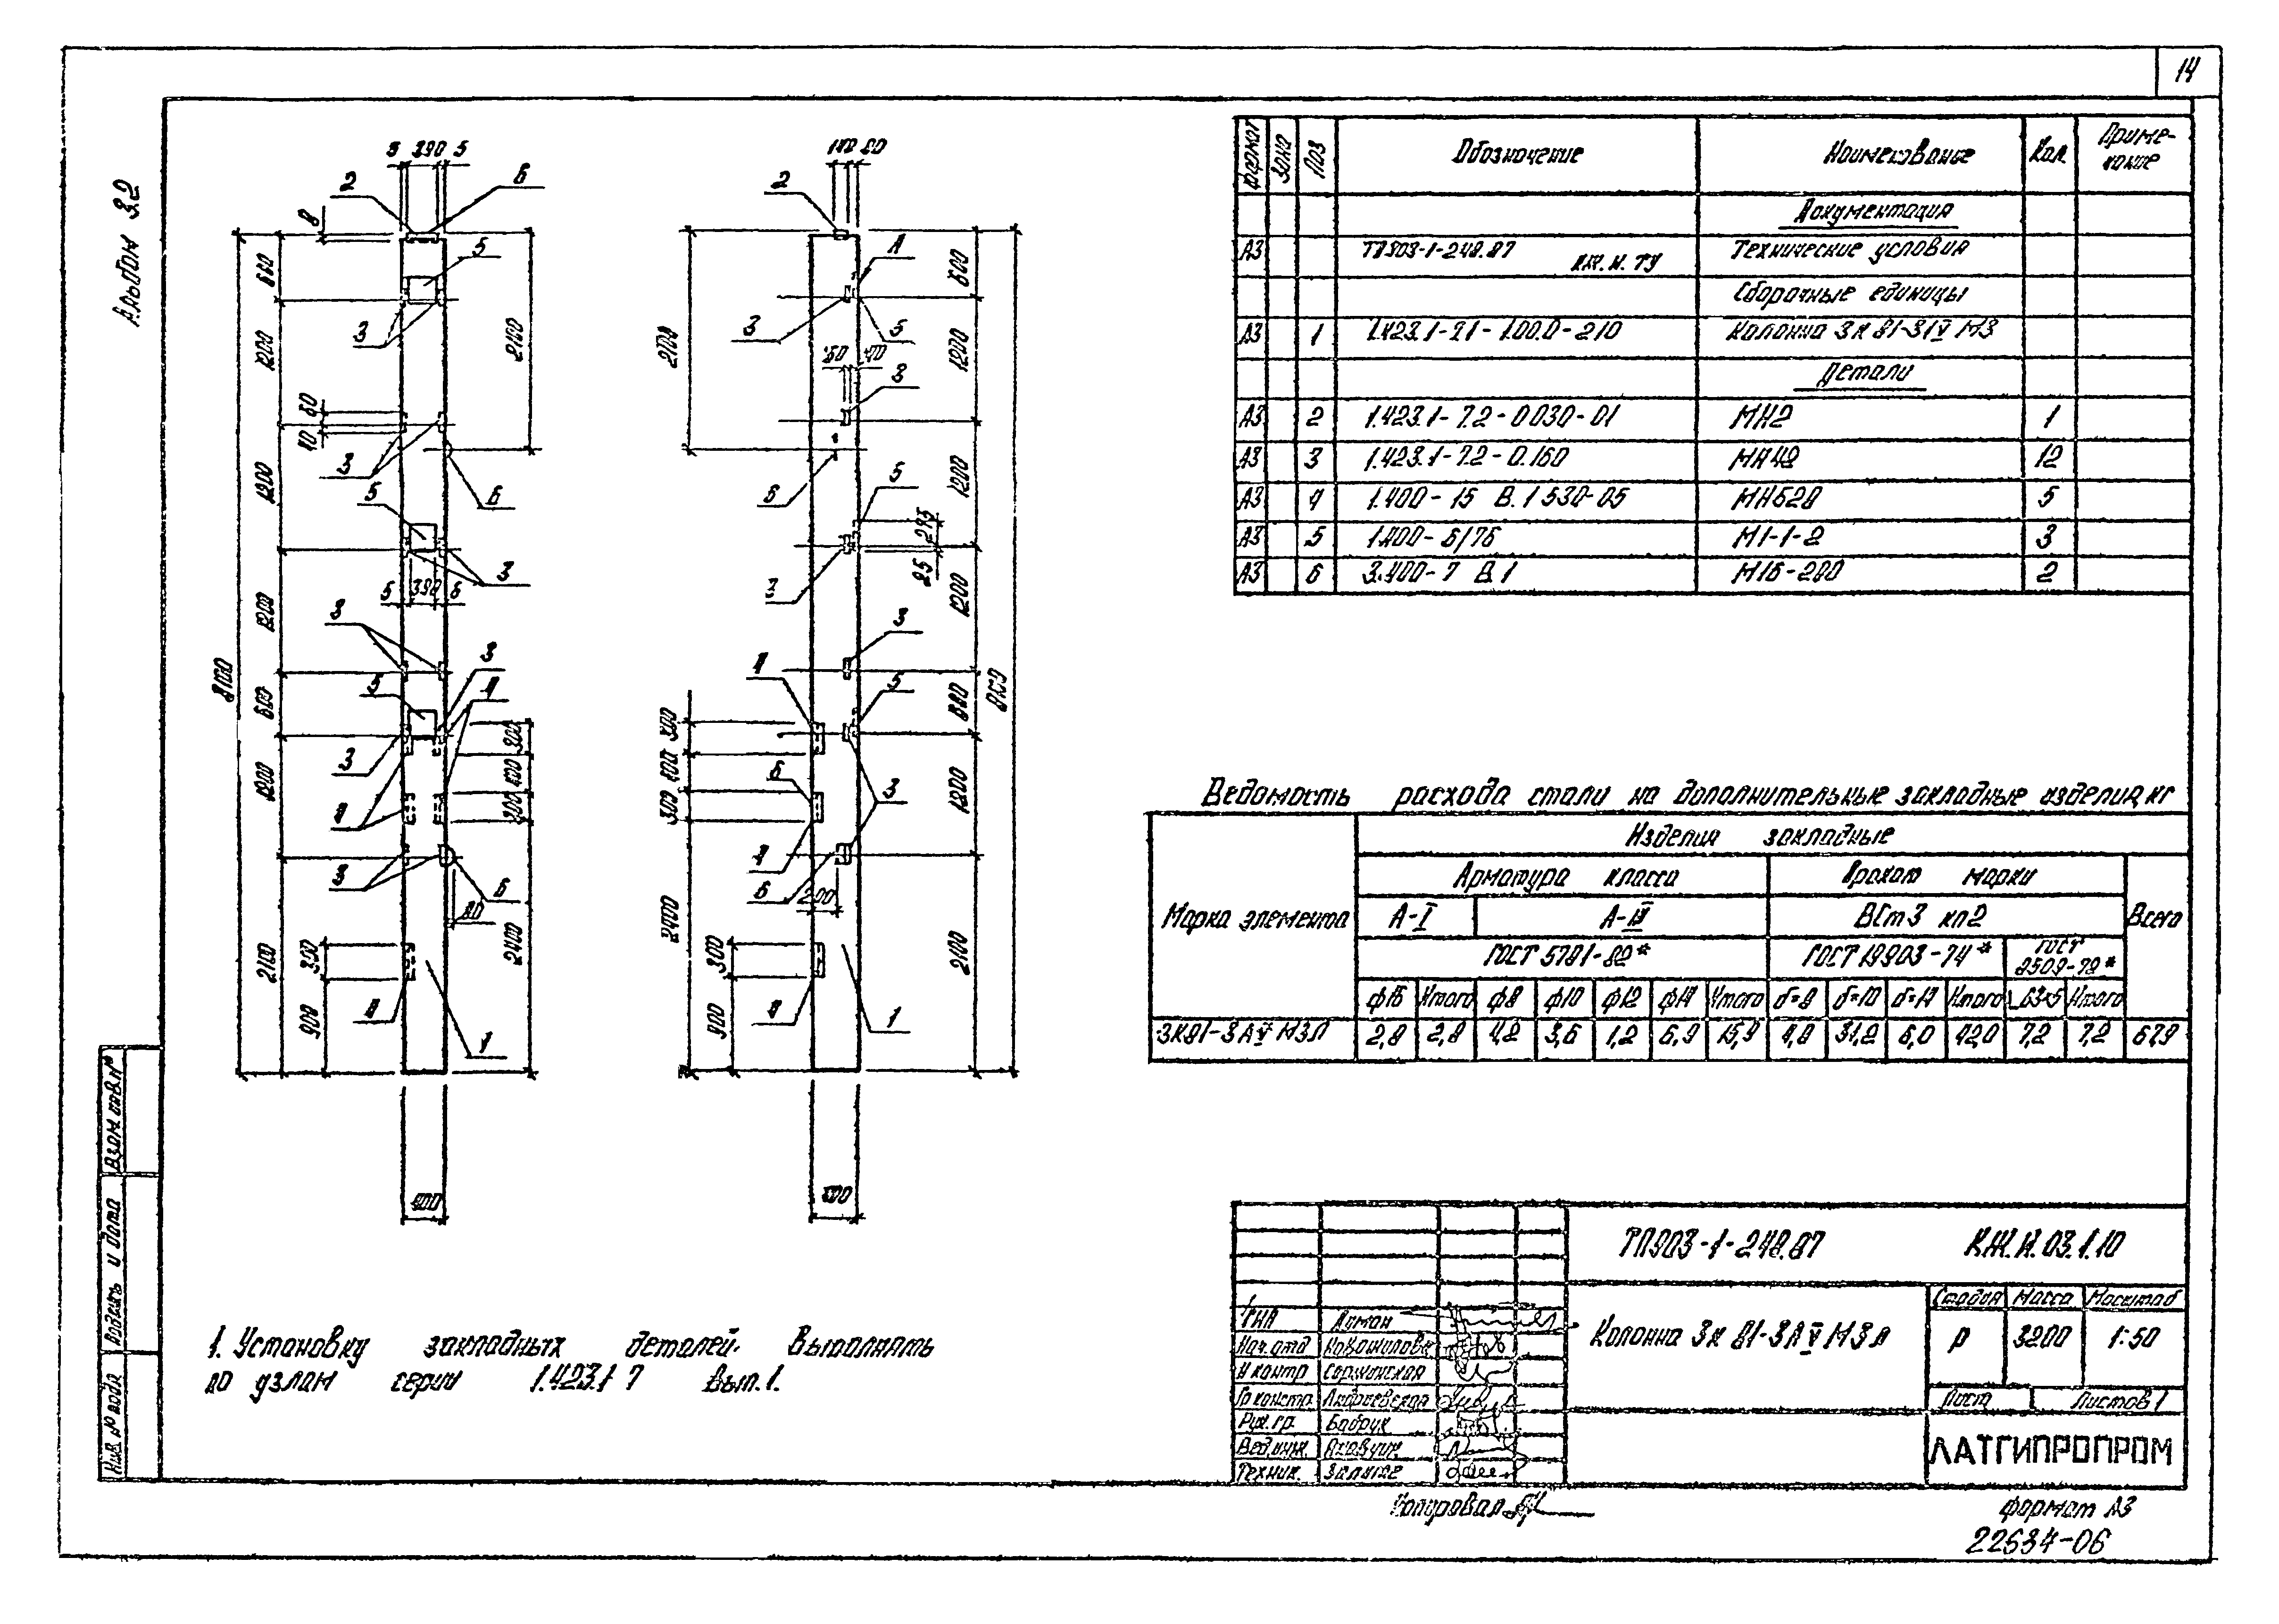 14
Альбом 3.2
5 390 5
2
6
8
5
660
1200
3
2100
60
40
3
6
1200
5
3
5 390 5
1200
3
3
5
4
8100
600
3
300
400
300
1200
4
3
6
80
2100
2400
300
900
4
1
400
2
2100
3
5
600
1200
3
6
5
1200
3
25
1200
3
4
5
300
400
300
6
3
4
6
200
1200
2400
2100
300
900
4
1
500
Формат Зона Поз Обозначение Наименование Кол. Примечание
Документация
А3 ТП903-1-248.87 КЖ.И.ТУ Технические условия
Сборочные единицы
А3 1 Колонна
Детали
А3 2 1.423.1-7.2-0.030-01 МН2 1
А3 3 1.423.1-7.2-0.160 МН48 12
А3 4 1.400-15 В.1 530-05 5
А3 5 1.400-6/76 М1-1-2 3
А3 6 3.400-7 В.1 М16-200 2
Ведомость расхода стали на дополнительные закладные изделия, кг
Марка элемента Изделия закладные
Арматура класса Прокат марки Всего
А-I ВСт3 кп2
ГОСТ 5781-82* ГОСТ 19903-74* ГОСТ 8509-72*
ф16 Итого ф8 ф10 ф12 ф14 Итого δ=8 δ=10 δ=14 Итого L63×5 Итого
3К81-3АV М3Л 2,8 2,8 4,2 3,6 1,2 6,9 15,9 4,8 31,2 6,0 42,0 7,2 7,2 67,9
1. Установку закладных деталей. Выполнять
по узлам серии 1.423.1 7 Вып. 1.
ТП903-1-248.87 КЖ.И.03.1.10
Колонна 3к 81-3АV М3л
Стадия Масса Масштаб
Р 3200 1:50
Лист Листов 1
ЛАТГИПРОПРОМ
ГИП
Нач. отд
Н контр
Гр констр.
Рук. гр. Бобрук
Вед. инж.
Техник.
Взам инв. №
Подпись и дата
Инв. № подл
Копировал
формат А3
22634-06